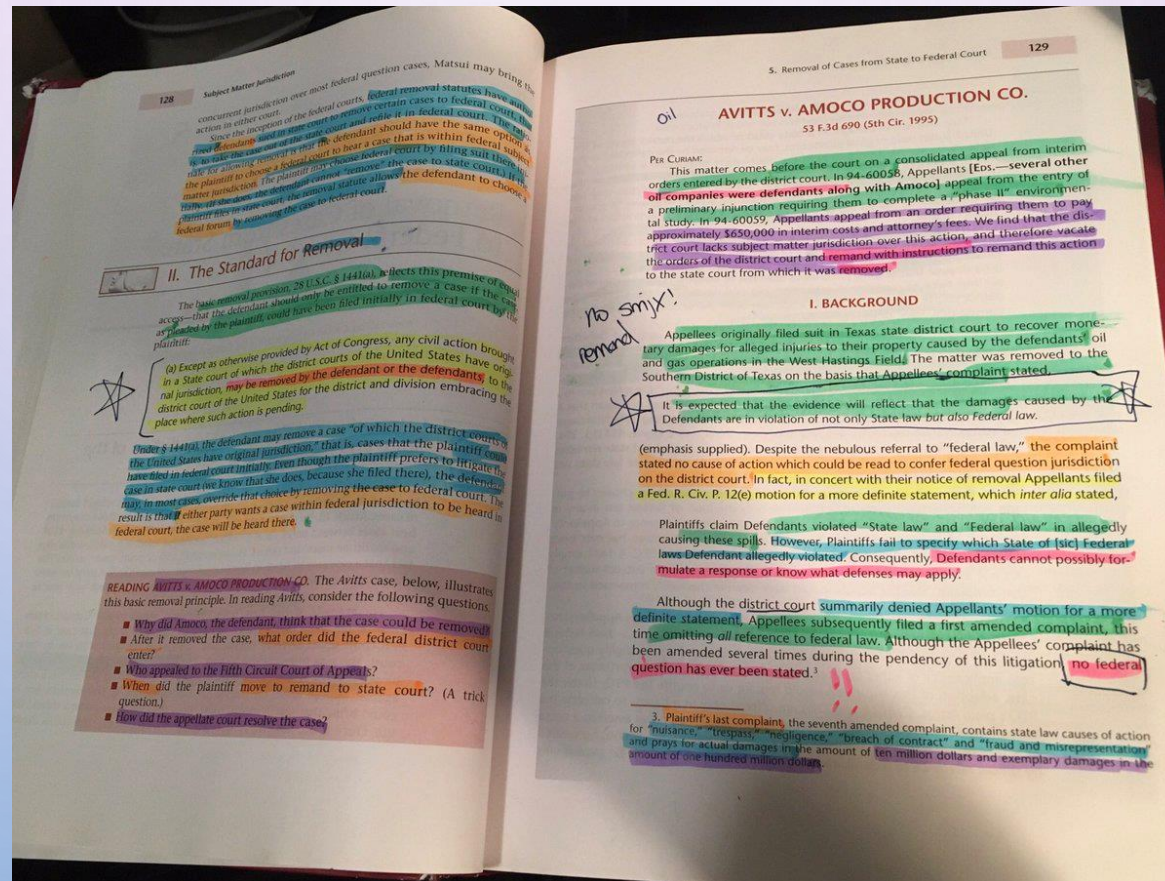 128 Subject Matter Jurisdiction
concurrent jurisdiction over most federal question cases, Matsui may bring the
action in either court.
Since the inception of the federal courts, federal removal statutes have
defendants sued in state court to remove certain cases to federal court, that
is, to take the case out of the state court and refile it in federal court. The
for allowing removal is that the defendant should have the same option as
the plaintiff to choose a federal court to hear a case that is within federal subject
matter jurisdiction. The plaintiff may choose federal court by filing suit there
If she does, the defendant cannot "remove" the case to state court.) If the
plaintiff files in state court, the removal statute allows the defendant to choose a
federal forum by removing the case to federal court.
II. The Standard for Removal
The basic removal provision, 28 U.S.C. § 1441(a), reflects this premise of equal
access—that the defendant should only be entitled to remove a case if the case,
as pleaded by the plaintiff, could have been filed initially in federal court by the
plaintiff:
(a) Except as otherwise provided by Act of Congress, any civil action brought
in a State court of which the district courts of the United States have origi-
nal jurisdiction, may be removed by the defendant or the defendants, to the
district court of the United States for the district and division embracing the
place where such action is pending.
Under § 1441(a), the defendant may remove a case "of which the district courts of
the United States have original jurisdiction," that is, cases that the plaintiff could
have filed in federal court initially. Even though the plaintiff prefers to litigate the
case in state court (we know that she does, because she filed there), the defendant
may, in most cases, override that choice by removing the case to federal court. The
result is that if either party wants a case within federal jurisdiction to be heard in
federal court, the case will be heard there.
READING AVITTS v. AMOCO PRODUCTION CO. The Avitts case, below, illustrates
this basic removal principle. In reading Avitts, consider the following questions.
■ Why did Amoco, the defendant, think that the case could be removed?
■ After it removed the case, what order did the federal district court
enter?
■ Who appealed to the Fifth Circuit Court of Appeals?
■ When did the plaintiff move to remand to state court? (A trick
question.)
■ How did the appellate court resolve the case?
5. Removal of Cases from State to Federal Court 129
Oil
AVITTS v. AMOCO PRODUCTION CO.
53 F.3d 690 (5th Cir. 1995)
PER CURIAM:
This matter comes before the court on a consolidated appeal from interim
orders entered by the district court. In 94-60058, Appellants [EDS.—several other
oil companies were defendants along with Amoco] appeal from the entry of
a preliminary injunction requiring them to complete a "phase II" environmen-
tal study. In 94-60059, Appellants appeal from an order requiring them to pay
approximately $650,000 in interim costs and attorney's fees. We find that the dis-
trict court lacks subject matter jurisdiction over this action, and therefore vacate
the orders of the district court and remand with instructions to remand this action
to the state court from which it was removed.
no smjx!
remand
I. BACKGROUND
Appellees originally filed suit in Texas state district court to recover mone-
tary damages for alleged injuries to their property caused by the defendants' oil
and gas operations in the West Hastings Field. The matter was removed to the
Southern District of Texas on the basis that Appellees' complaint stated,
It is expected that the evidence will reflect that the damages caused by the
Defendants are in violation of not only State law but also Federal law.
(emphasis supplied). Despite the nebulous referral to "federal law," the complaint
stated no cause of action which could be read to confer federal question jurisdiction
on the district court. In fact, in concert with their notice of removal Appellants filed
a Fed. R. Civ. P. 12(e) motion for a more definite statement, which inter alia stated,
Plaintiffs claim Defendants violated "State law" and "Federal law" in allegedly
causing these spills. However, Plaintiffs fail to specify which State of [sic] Federal
laws Defendant allegedly violated. Consequently, Defendants cannot possibly for-
mulate a response or know what defenses may apply.
Although the district court summarily denied Appellants' motion for a more
definite statement, Appellees subsequently filed a first amended complaint, this
time omitting all reference to federal law. Although the Appellees' complaint has
been amended several times during the pendency of this litigation, no federal
question has ever been stated.³
!!
3. Plaintiff's last complaint, the seventh amended complaint, contains state law causes of action
for "nuisance," "trespass," "negligence," "breach of contract" and "fraud and misrepresentation"
and prays for actual damages in the amount of ten million dollars and exemplary damages in the
amount of one hundred million dollars.